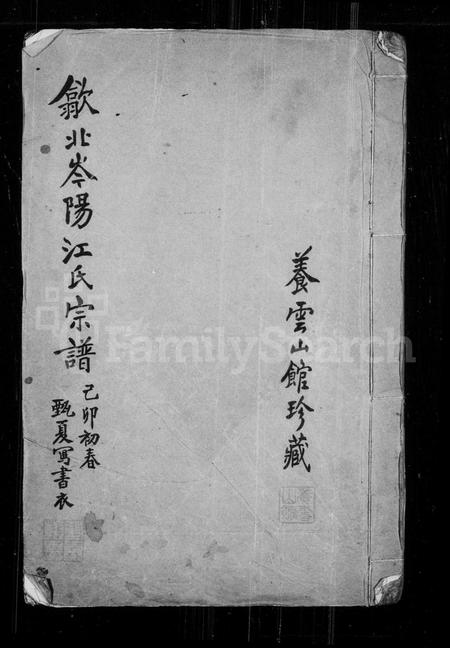 養雲山館珍藏
歙北岑陽江氏宗譜
己卯初春
甄夏寫書衣
FamilySearch